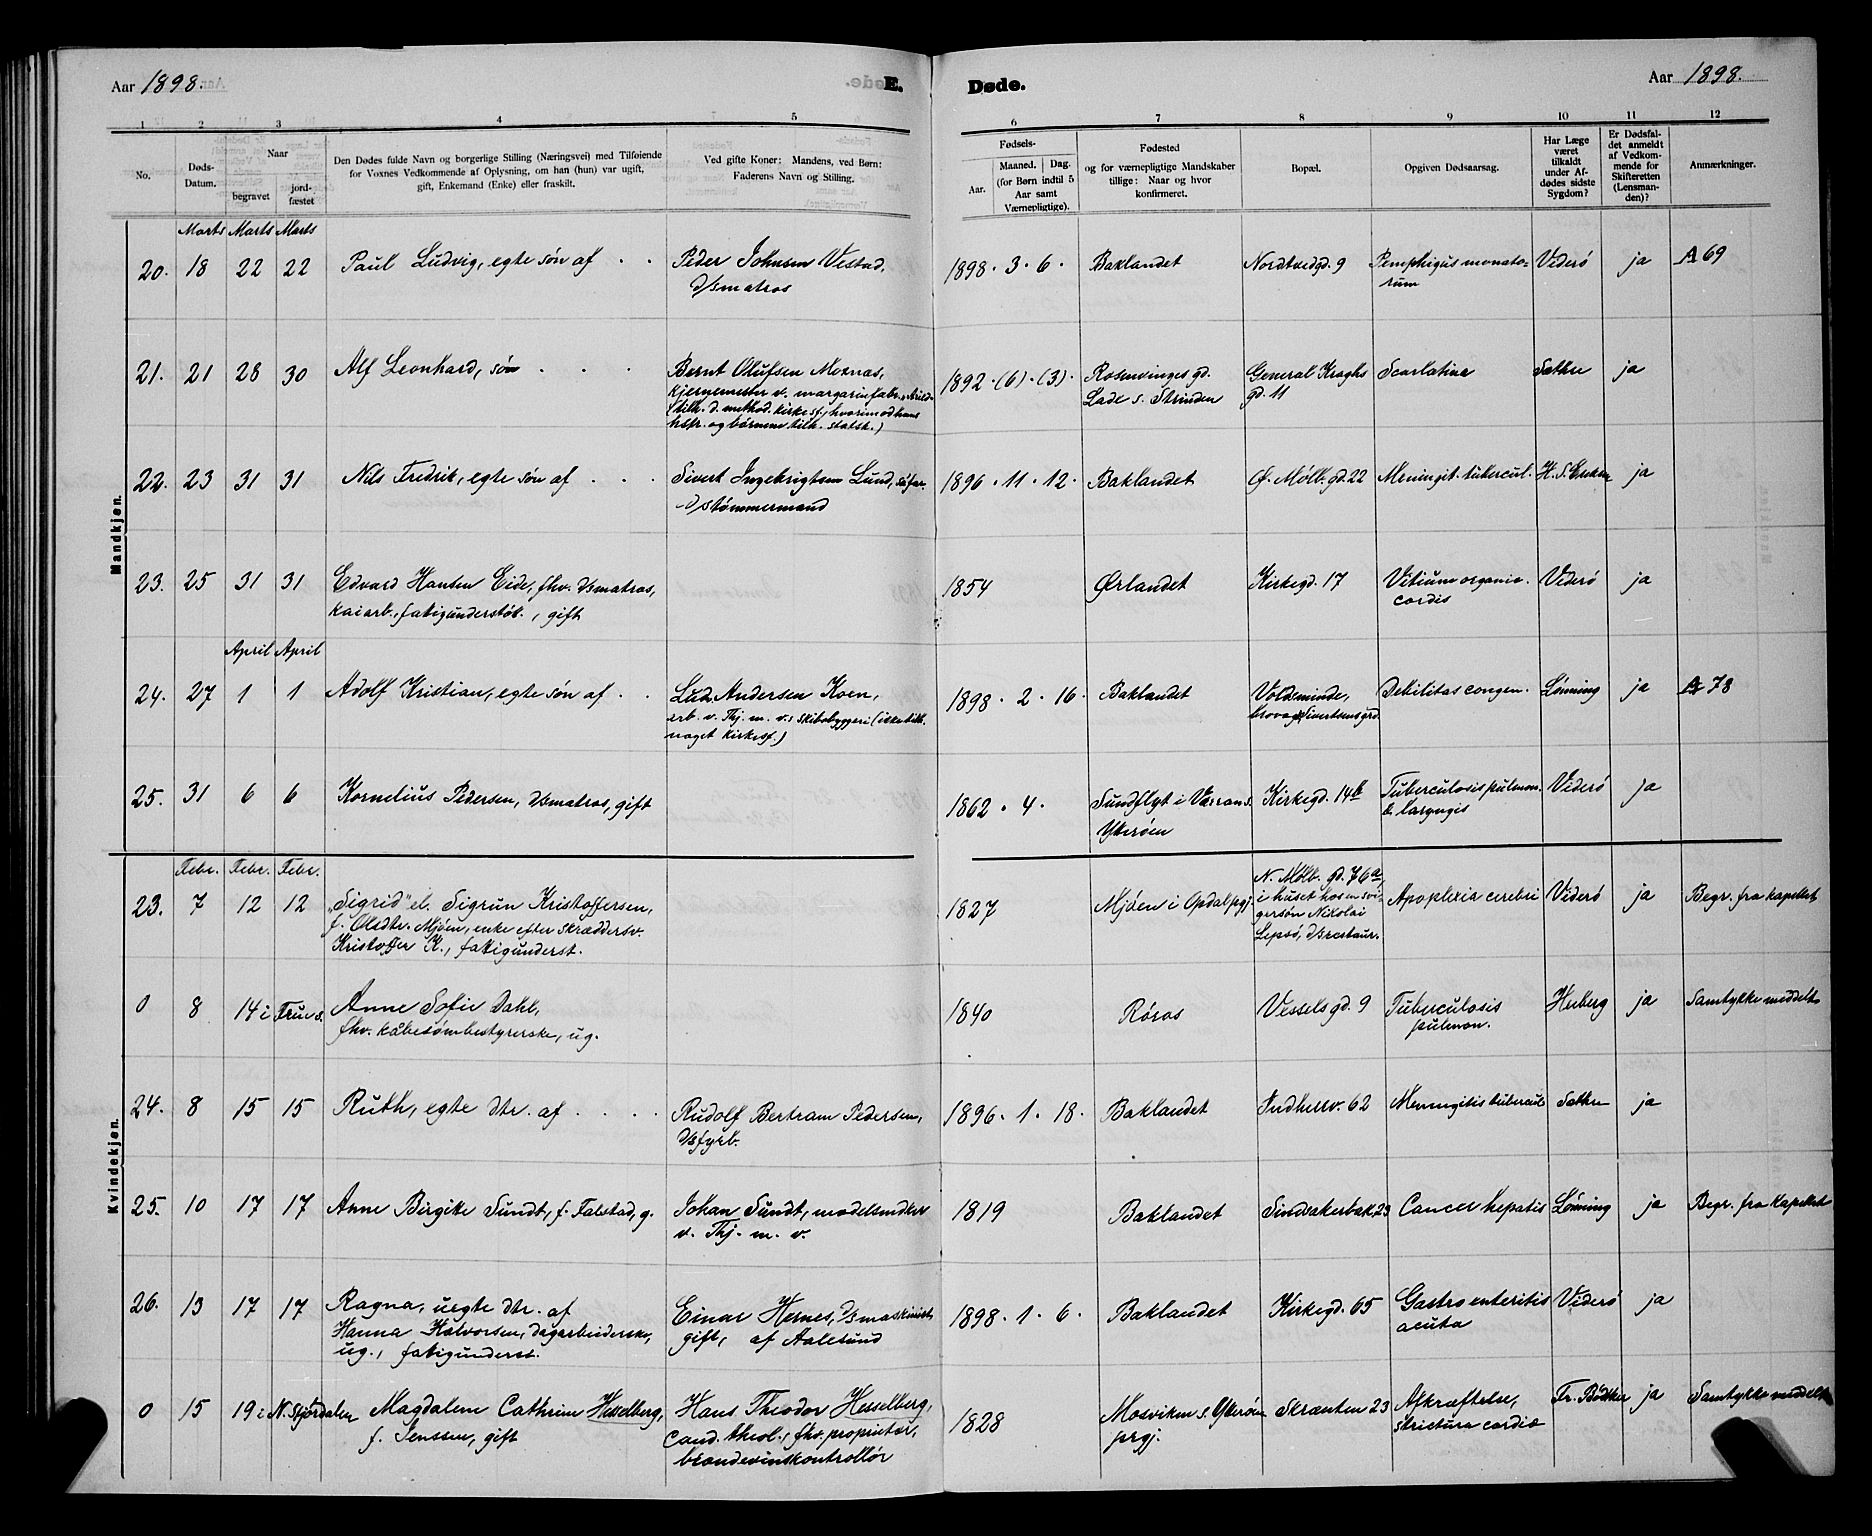 Aar 1898.
E. Døde.
Aar 1898.
1 2 3 4 5 6 7 8 9 10 11 12
No.
Døds-
Datum.
Naar
begravet
jord-
fæstet
Den Dødes fulde Navn og borgerlige Stilling (Næringsvei) med Tilføiende
for Voxnes Vedkommende af Oplysning, om han (hun) var ugift,
gift, Enkemand (Enke) eller fraskilt.
Ved gifte Koner: Mandens, ved Børn:
Faderens Navn og Stilling.
Fødsels-
Aar.
Maaned. Dag.
(for Børn indtil 5
Aar samt
Værnepligtige).
Fødested
og for værnepligtige Mandskaber
tillige: Naar og hvor
konfirmeret.
Bopæl.
Opgiven Dødsaarsag.
Har Læge
været
tilkaldt
under Af-
dødes sidste
Sygdom?
Er Dødsfal-
det anmeldt
af Vedkom-
mende for
Skifteretten
(Lensman-
den)?
Anmærkninger.
Mandkjøn.
Marts Marts Marts
20. 18 22 22 Paul Ludvig, egte søn af . .
Peder Johnsen Vestad,
d/smatros
1898 . 3 . 6 . Baklandet Nordtvedgd. 9
Pemphigus monato-
rum
Viderö ja A 69
21. 21 28 30 Alf Leonhard, søn . . .
Bernt Olufsen Moxnas,
kjernemester v. margarinfabr.
(tilh. d. method. kirkesf, hvorimod hans
hstr. og børnene tilh. statsk.)
1892 . (6) . (3) .
Rosenvinges gd.
Lade s. Strinden
General Kraghs
gd. 11
Scarlatina Sathre ja
22. 23 31 31 Nils Fredrik, egte søn af . . .
Sivert Ingebrigtsen Lund,
d/stømmermand
1896 . 11 . 12 . Baklandet Ø. Møllb. gd. 22 Meningit. tubercul. ja
23. 25 31 31 Edvard Hansen Eide, fhv. d/smatros,
kaiarb., fatigunderstøt., gift
1854 Ørlandet Kirkegd. 17
Vitium organic.
cordis
Viderö ja
April April
24. 27 1 1 Adolf Kristian, egte søn af . .
Lud. Andersen Koen,
arb. v. Thj. m. v.s skibsbyggeri (ikke tilh.
noget kirkesf.)
1898 . 2 . 16 . Baklandet
Voldsminde,
Debilitas congen. Lönning ja A 78
25. 31 6 6 Kornelius Pedersen, d/smatros, gift
1862 . 4 .
Sundflyt i Værran s.
Ytterøen
Kirkegd. 14b
Tuberculosis pulmon.
& laryngis
Viderö ja
Kvindekjøn.
Febr. Febr. Febr.
23. 7 12 12 "Sigrid" el. Sigrun Kristoffersen,
f. Olsdtr. Mjöen, enke efter skræddersv.
Kristoffer K., fatigunderst.
1827 Mjöen i Opdal pgj.
N. Møllb. gd. 76a,
i huset hos en svi-
gersön Nikolai
Lepsö, d/srestaur.
Apoplexia cerebri Viderö ja Begr. fra kapellet
0 8 14 i Frue s. Anne Sofie Dahl,
fhv. kåbesømbestyrerske, ug.
1840 Röros Vesselsgd. 9
Tuberculosis
pulmon.
ja Samtykke meddelt
24. 8 15 15 Ruth, egte dtr. af . . . .
Rudolf Bertram Pedersen,
d/sfyrb.
1896 . 1 . 18 . Baklandet Indherv. 62 Meningitis tubercul. Sathre ja
25. 10 17 17 Anne Birgitte Sundt, f. Falstad, g.
Johan Sundt, modelsnedker
v. Thj. m. v.
1819 Baklandet Sindsakerbak. 23 Cancer hepatis Lönning ja Begr. fra kapellet
26. 13 17 17 Ragna, uegte dtr. af
Hanna Halvorsen, dagarbeiderske,
ug., fatigunderst.
Einar Hernes, d/smaskinist,
gift, af Aalesund
1898 . 1 . 6 . Baklandet Kirkegd. 65
Gastroenteritis
acuta
Viderö ja
0 15 19 i N. Stjørdalen Magdalene Cathrine Hesselberg,
f. Jenssen, gift
Hans Theodor Hesselberg,
Cand. theol., fhv. proprietær,
brændevinskontrollør
1828
Mosviken s. Ytterøen
prgj.
Skrænten 23
Afkræftelse,
strictura cardiæ
Fr. Bödtker ja Samtykke meddelt